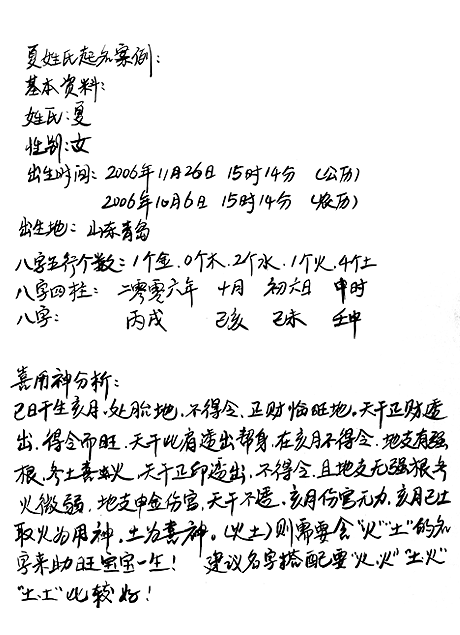 夏姓氏起名案例:
基本资料:
姓氏:夏
性别:女
出生时间: 2006年11月26日 15时14分 (公历)
2006年10月6日 15时14分 (农历)
出生地: 山东青岛
八字五行个数: 1个金、0个木、2个水、1个火、4个土
八字四柱: 二零零六年 十月 初六日 申时
八字: 丙戌 己亥 己未 壬申
喜用神分析:
己日干生亥月,处胎地,不得令,正财临旺地。天干正财透
出,得令而旺,天干比肩透出帮身,在亥月不得令,地支有强
根,冬土喜火,天干正印透出,不得令,且地支无强根,冬
火微弱,地支申金伤官,天干不透,亥月伤官无力,亥月己土
取火为用神,土为喜神。(火土)则需要含“火”“土”的名
字来助旺宝宝一生! 建议名字搭配要“火.火”“土.火”
“土.土”比较好!